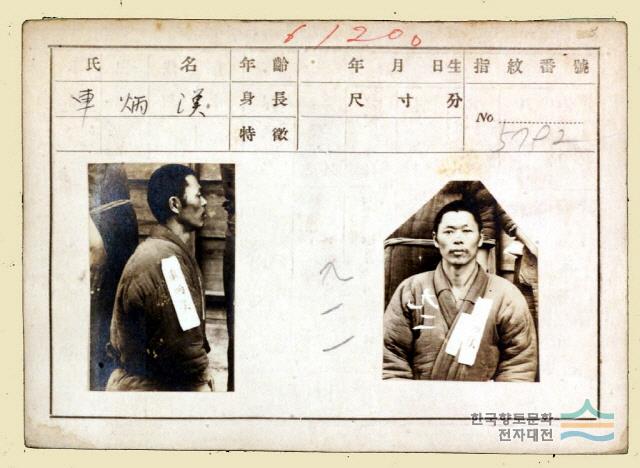 61200
氏名 年齡 年月日生 指紋番號
車炳漢 身長 尺寸分 No 5702
特徵
九一一
한국향토문화
전자대전